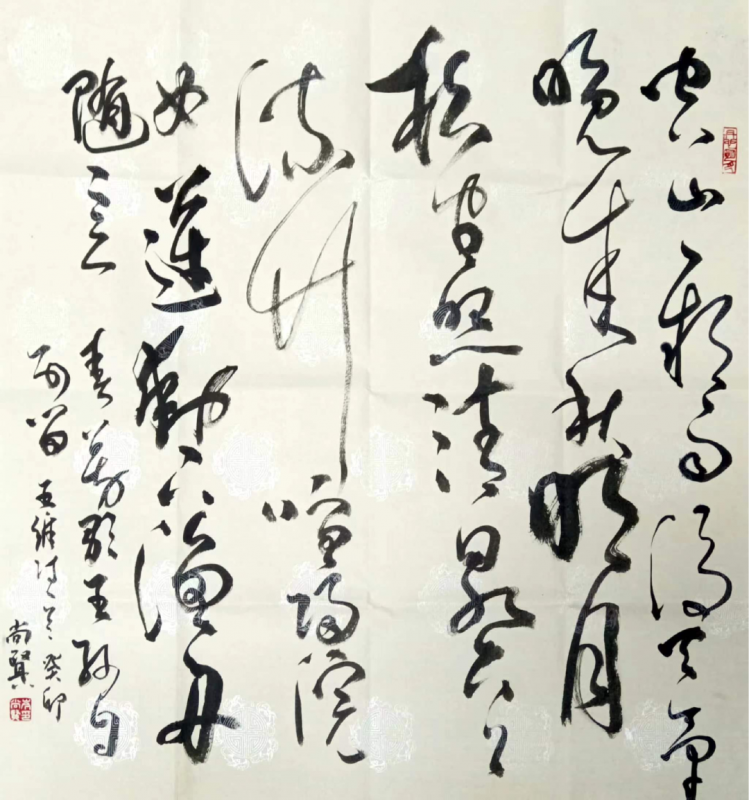 空山新雨後天氣
晚來秋明月
松間照清泉石上
流竹喧歸浣
女蓮動下漁舟
隨意春芳歇王孫自
可留王維詩癸卯
尚賢